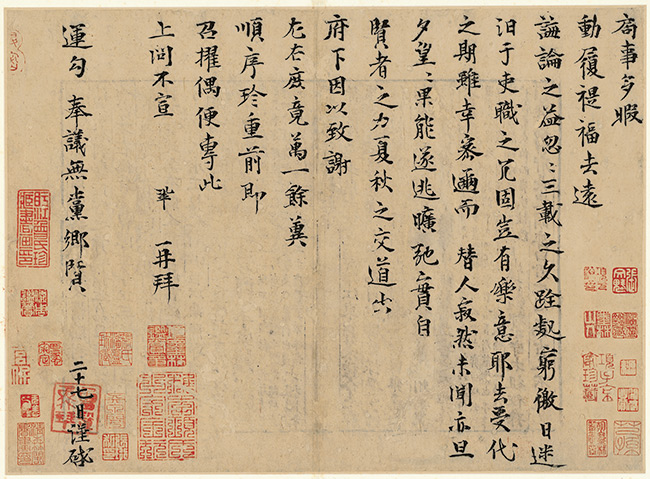 局事多暇
動履禔福去遠
誨論之益忽〻三載之久跧處窮徼日迷
汨于吏職之冗固豈有樂意耶去受代
之期雖幸密邇而 替人寂然未聞亦旦
夕望〻果能遂逃曠弛實自
賢者之力夏秋之交道出
府下因以致謝
左右庶竟萬一餘冀
順序珍重前即
召擢偶便專此
上問不宣 鞏 再拜
運勾 奉議無黨鄉賢
二十七日謹啓